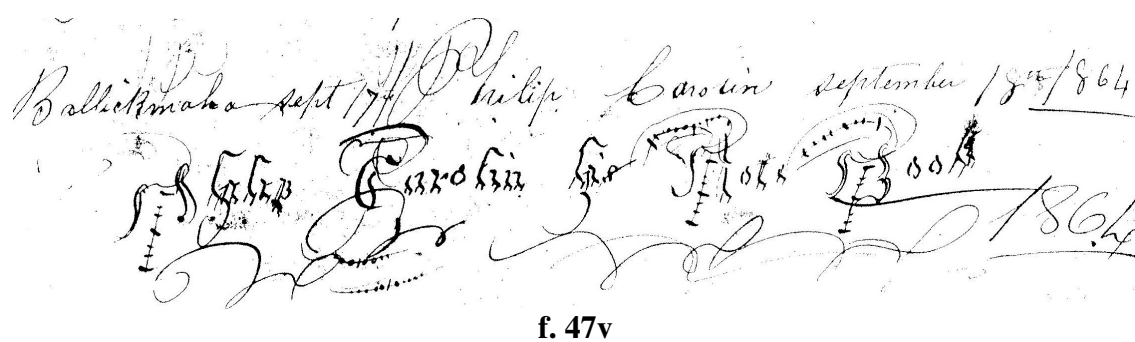 Ballickmoha sept 17th Philip Carolin september 18th 1864
Philip Carolin his Note Book
1864
f. 47v